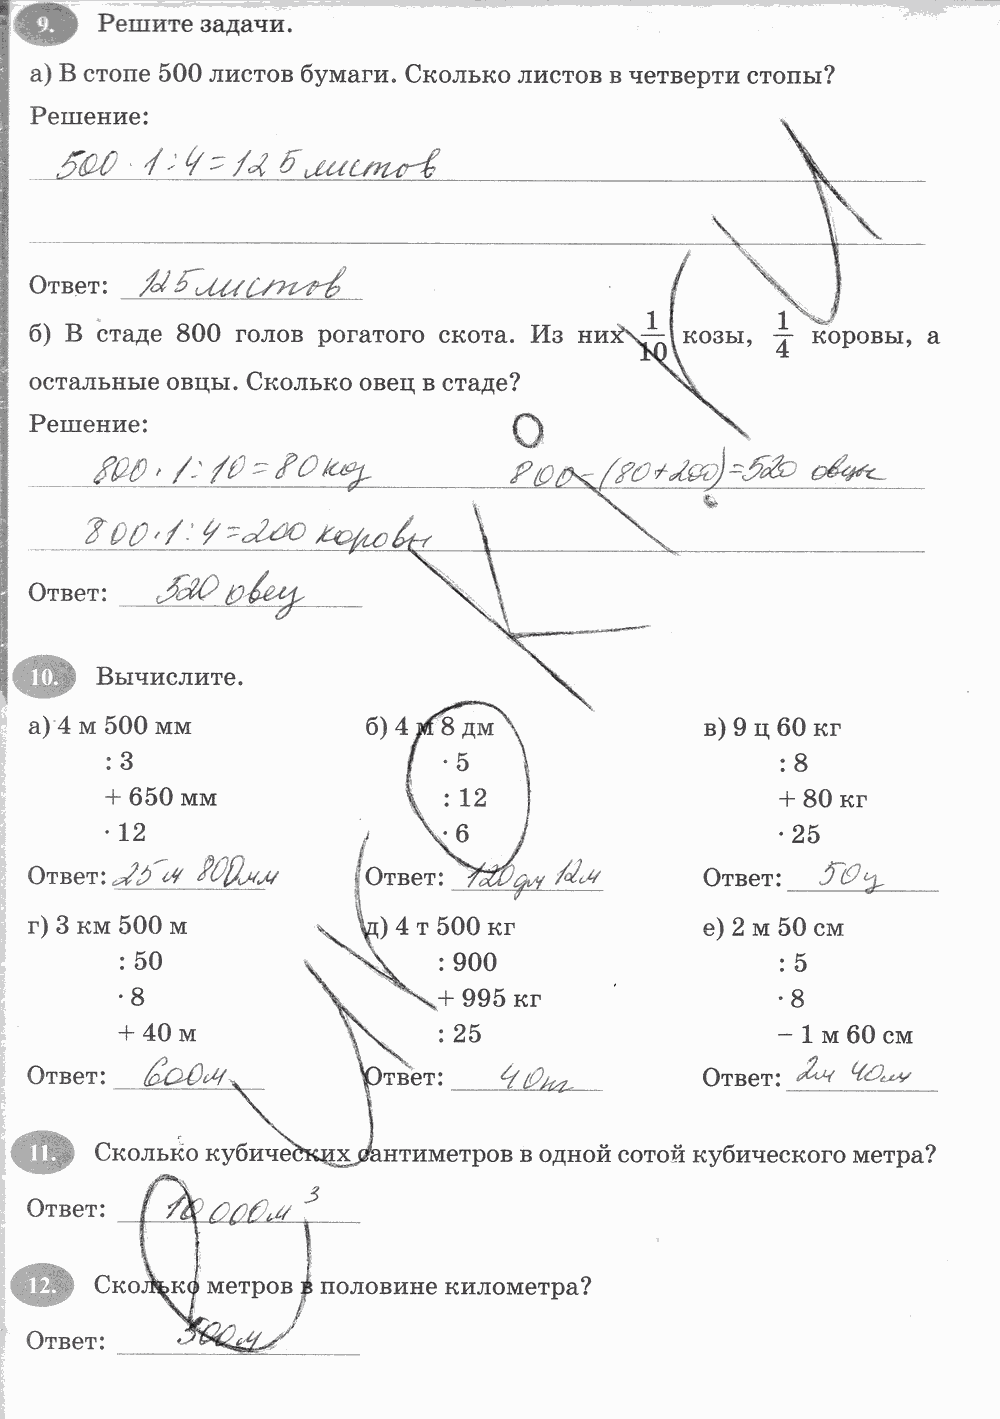 9. Решите задачи.
а) В стопе 500 листов бумаги. Сколько листов в четверти стопы?
Решение:
500 · 1 : 4 = 125 листов
Ответ: 125 листов
б) В стаде 800 голов рогатого скота. Из них 1/10 козы, 1/4 коровы, а
остальные овцы. Сколько овец в стаде?
Решение:
800 · 1 : 10 = 80 коз 800 - (80 + 200) = 520 овцы
800 · 1 : 4 = 200 коровы
Ответ: 520 овец
10. Вычислите.
а) 4 м 500 мм б) 4 м 8 дм в) 9 ц 60 кг
: 3 · 5 : 8
+ 650 мм : 12 + 80 кг
· 12 · 6 · 25
Ответ: 25 м 800 мм Ответ: 120 дм 12 м Ответ: 50 ц
г) 3 км 500 м д) 4 т 500 кг е) 2 м 50 см
: 50 : 900 : 5
· 8 + 995 кг · 8
+ 40 м : 25 − 1 м 60 см
Ответ: 600 м Ответ: 40 кг Ответ: 2 м 40 см
11. Сколько кубических сантиметров в одной сотой кубического метра?
Ответ: 10 000 м³
12. Сколько метров в половине километра?
Ответ: 500 м